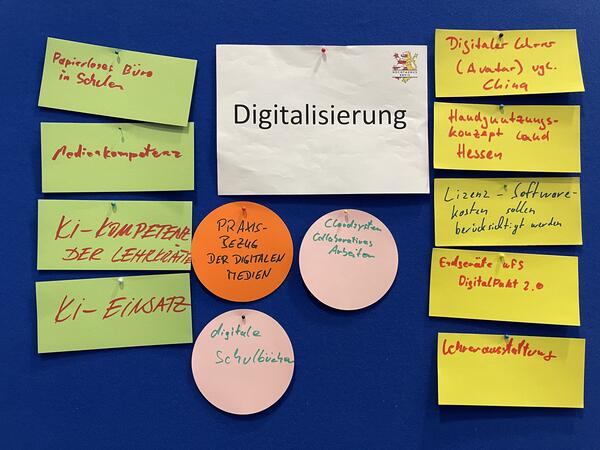 Papierloses Büro
in Schulen
Medienkompetenz
KI-KOMPETENZ
DER LEHRKRÄFTE
KI-EINSATZ
Digitalisierung
PRAXIS-
BEZUG
DER DIGITALEN
MEDIEN
Cloudsystem
Collaboratives
Arbeiten
digitale
Schulbücher
Digitaler Lehrer
(Avatar) vgl.
China
Handynutzungs-
konzept Land
Hessen
Lizenz-Software-
kosten sollen
berücksichtigt werden
Endgeräte
DigitalPakt 2.0
Lehrerausstattung